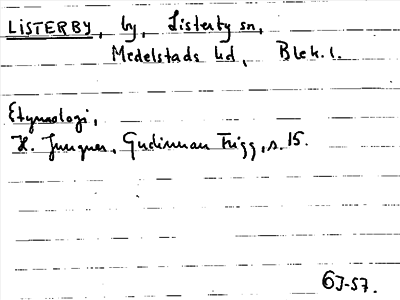 LISTERBY, by, Listerby sn,
Medelstads hd, Blek. l.
Etymologi,
H. Jungner, Gudinnan Frigg, s. 15.
GJ-57.